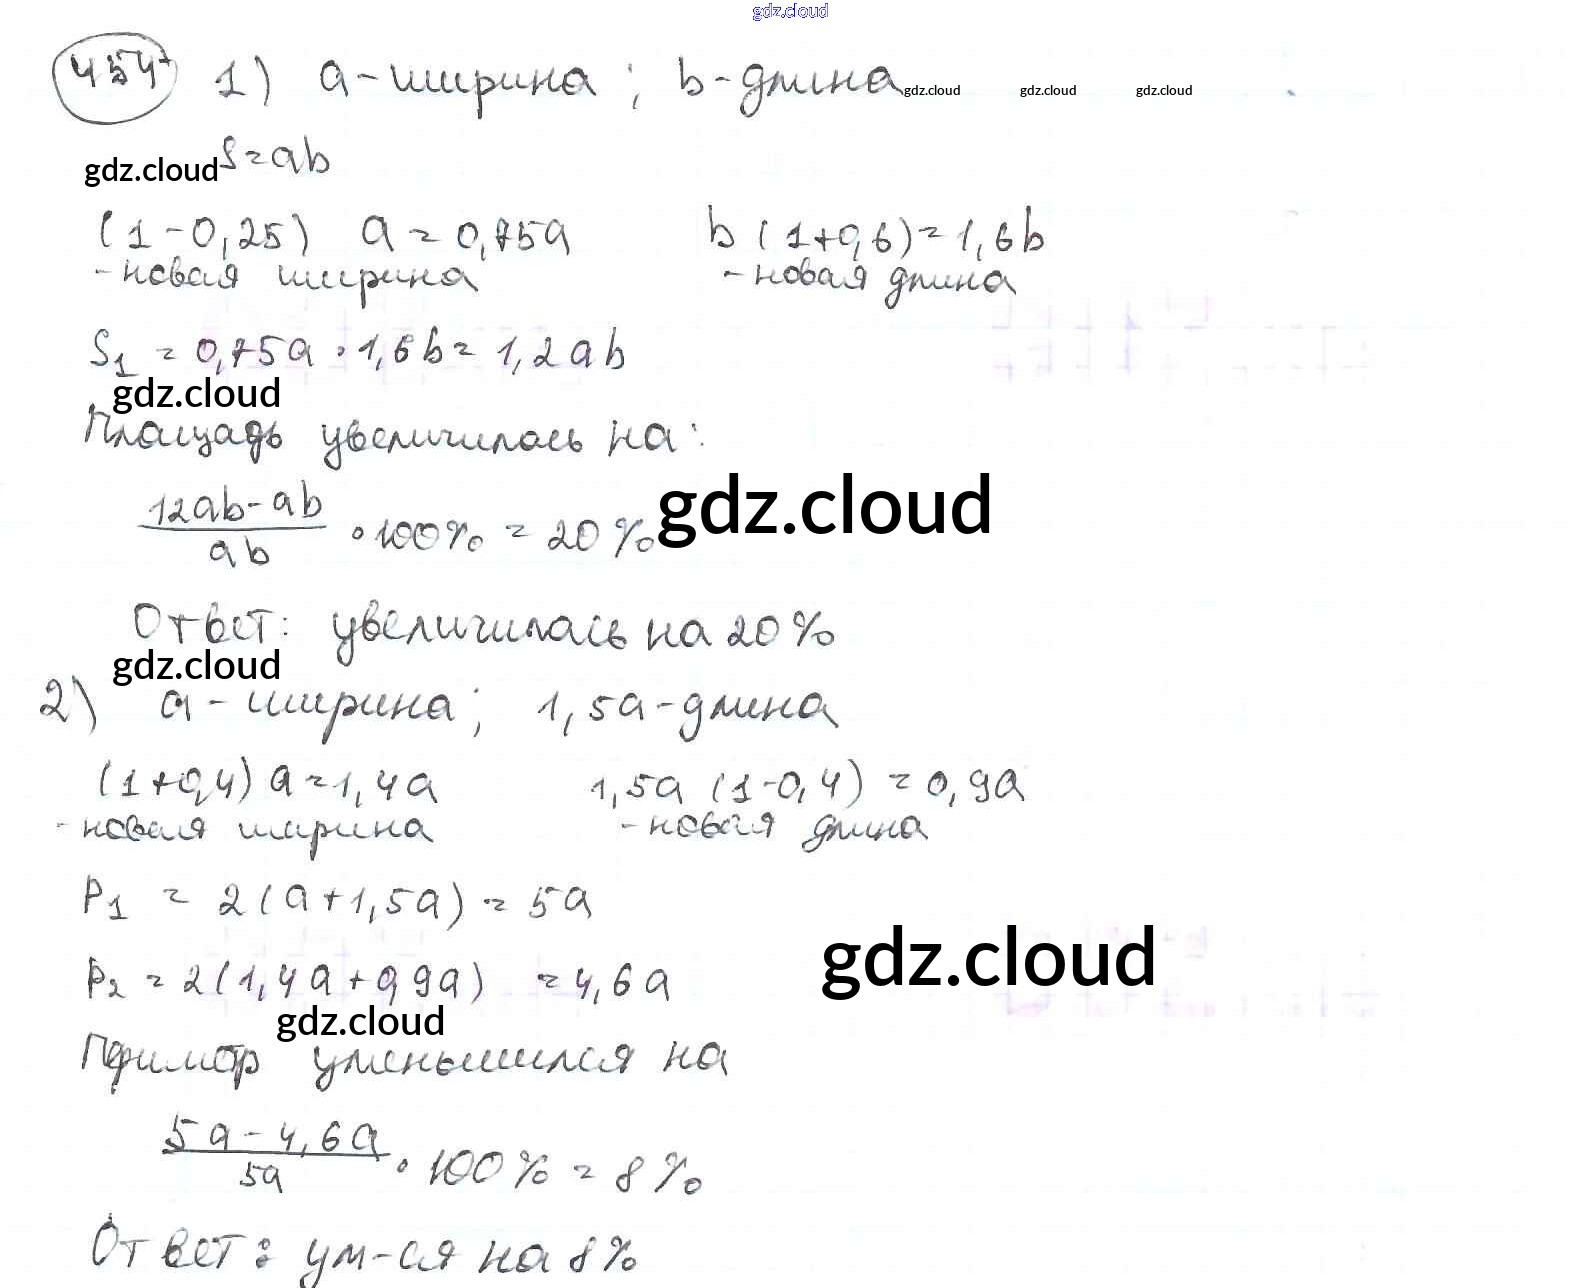 gdz.cloud
454 1) a - ширина ; b - длина gdz.cloud gdz.cloud gdz.cloud
gdz.cloud S = ab
(1 - 0,25) a = 0,75a b (1 + 0,6) = 1,6b
- новая ширина - новая длина
S₁ = 0,75a · 1,6b = 1,2ab
gdz.cloud
Площадь увеличилась на:
12ab - ab
ab
· 100% = 20% gdz.cloud
Ответ: увеличилась на 20%
gdz.cloud
2) a - ширина ; 1,5a - длина
(1 + 0,4) a = 1,4a 1,5a (1 - 0,4) = 0,9a
- новая ширина - новая длина
P₁ = 2(a + 1,5a) = 5a
gdz.cloud
P₂ = 2(1,4a + 0,9a) = 4,6a
gdz.cloud
Периметр уменьшился на
5a - 4,6a
5a
· 100% = 8%
Ответ: ум-ся на 8%